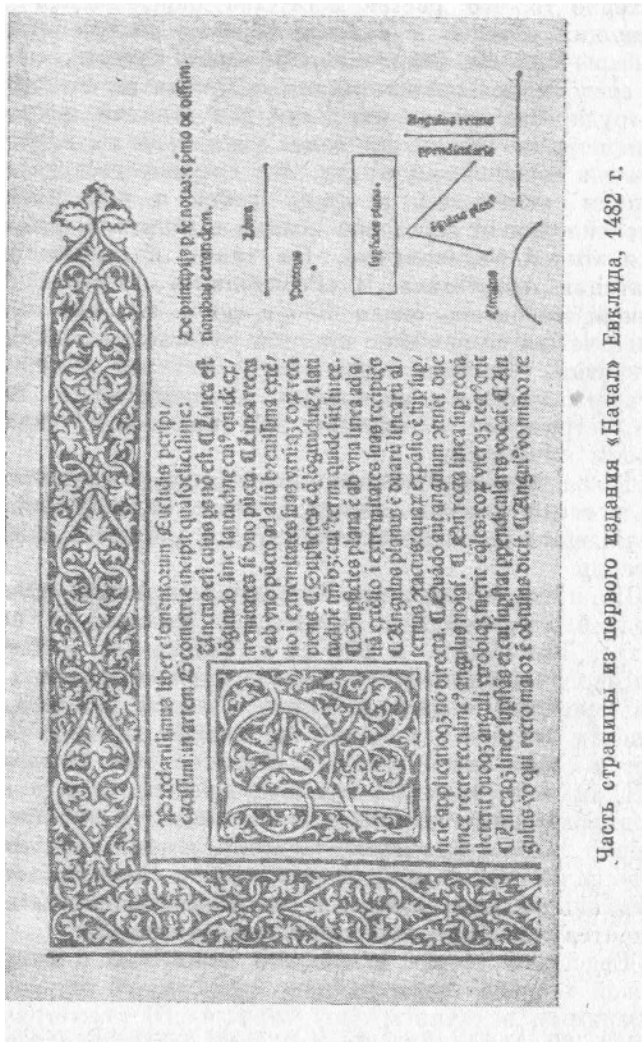 Preclarissimus liber elementorum Euclidis perspi/
cacissimi: in artem Geometrie incipit quāfoelicissime:
Punctus est cuius ps nō est. ¶ Linea est
lōgitudo sine latitudine cui⁹ quidē ex/
tremitates sūt duo pūcta. ¶ Linea recta
ē ab vno pūcto ad aliū breuissima extē/
sio i extremitates suas vtrūqȝ eoȝ reci
piens. ¶ Supficies ē q̄ lōgitudinē ⁊ lati
tudinē tm̄ hȝ: cui⁹ termi quidē sūt linee.
¶ Supficies plana ē ab vna linea ad a/
liā extēsio i extremitates suas recipiēs
¶ Angulus planus ē duarū linearū al/
ternus ꝯtactus: quaȝ expāsio ē sup sup/
ficiē applicatioqȝ nō directa. ¶ Quādo aut angulum ꝯtinēt due
linee recte rectiline⁹ angulus noiat. ¶ Qn̄ recta linea sup rectā
steterit duoqȝ anguli vtrobiqȝ fuerit eq̄les: eoȝ vterqȝ rect⁹ erit
¶ Lineaqȝ linee supstās ei cui supstat ppendicularis vocat. ¶ An
gulus vo qui recto maior ē obtusus dicit. ¶ Angul⁹ vo minor re
De principijs p se notis: ⁊ pmo de diffini/
tionibus earandem.
Linea
Punctus
Supficies plana.
Angulus rectus
ppendicularis
āgulus plan⁹
Circulus
Часть страницы из первого издания «Начал» Евклида, 1482 г.